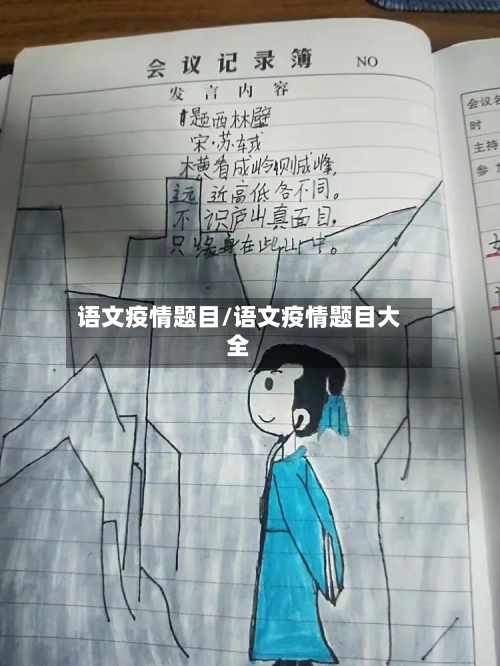 会议记录簿 NO
发言内容
题西林壁
宋·苏轼
横看成岭侧成峰,
远近高低各不同。
不识庐山真面目,
只缘身在此山中。
语文疫情题目/语文疫情题目大
全
会议名
时
主持
参加